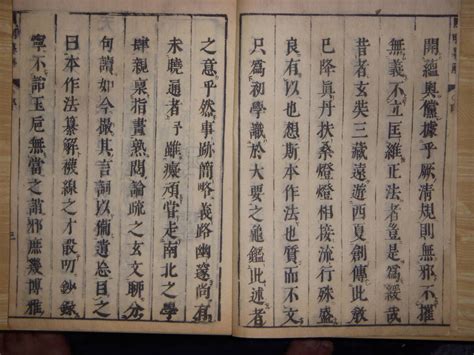 開蘊奧儻據乎厥清規則無邪不摧
無義不立匡維正法者豈是為緩哉
昔者玄奘三藏遠遊西夏創傳此教
已降真丹扶桑燈燈相 流行殊盛
明可以想斯本作法也 而
只為初學識於大要之龜鑑此述者
之意乎然事跡簡略義路幽邃尚有
未曉通者予雖癡頑嘗走南北之學
肆親稟指畫熟閱論疏之玄文聊分
句讀如今撮其言詞以備遺忘目之
日本作法纂解襪線之才敢叨鈔錄
寧不 玉巵無當之誚邪庶幾博雅